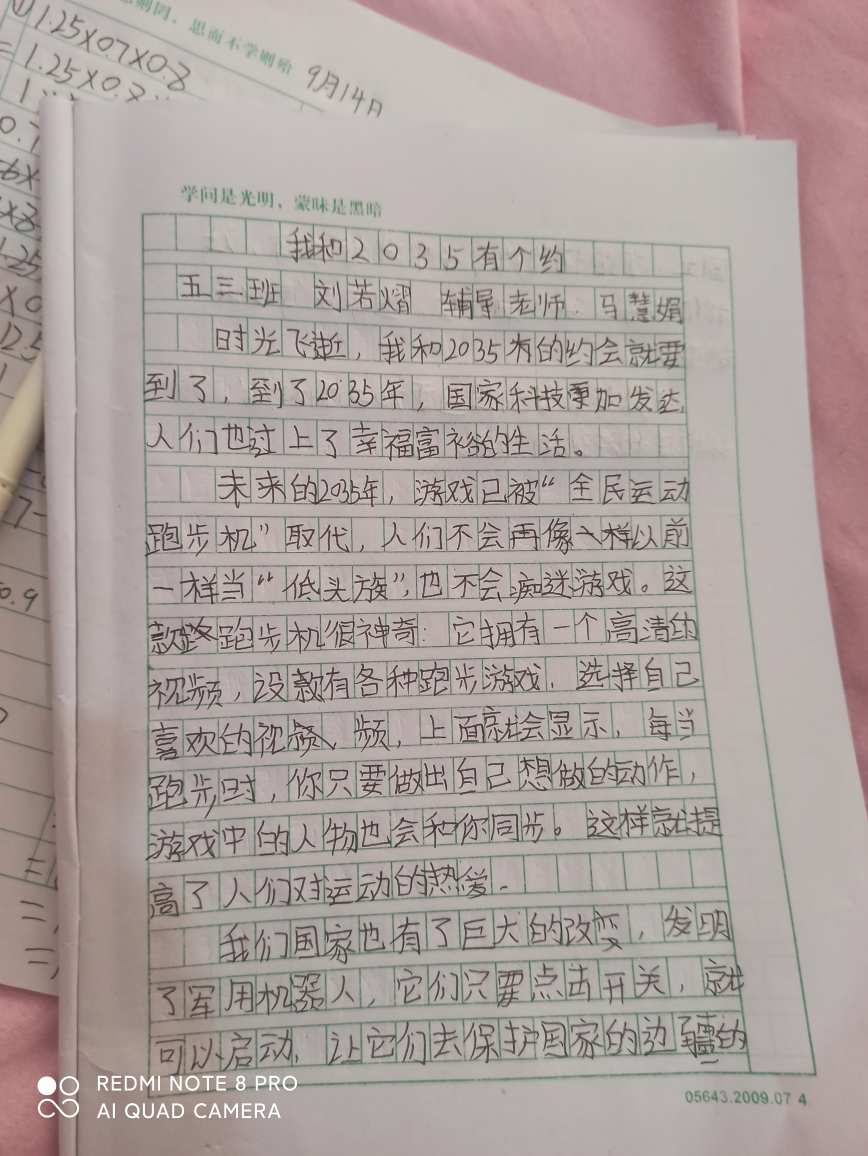 思而不学则殆
9月14日
1.25×0.7×0.8
=1.25×0.8
学问是光明，蒙昧是黑暗
我和2035有个约
五三班 刘若熠 辅导老师：马慧娟
时光飞逝，我和2035有的约会就要
到了，到了2035年，国家科技更加发达，
人们也过上了幸福富裕的生活。
未来的2035年，游戏已被“全民运动
跑步机”取代，人们不会再像样以前
一样当“低头族”，也不会痴迷游戏。这
款跑步机很神奇：它拥有一个高清的
视频，没款有各种跑步游戏，选择自己
喜欢的视频、频，上面就会显示，每当
跑步时，你只要做出自己想做的动作，
游戏中的人物也会和你同步。这样就提
高了人们对运动的热爱。
我们国家也有了巨大的改变，发明
了军用机器人，它们只要点击开关，就
可以启动，让它们去保护国家的边疆的
REDMI NOTE 8 PRO
AI QUAD CAMERA
05643.2009.07 4